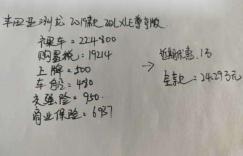 丰田亚洲龙 2019款 2.0L XLE尊贵版
裸车 = 224800
购置税: 19214
上牌 = 500
车船: 480
交强险 = 950
商业保险 = 6937
全款 = 24.293元